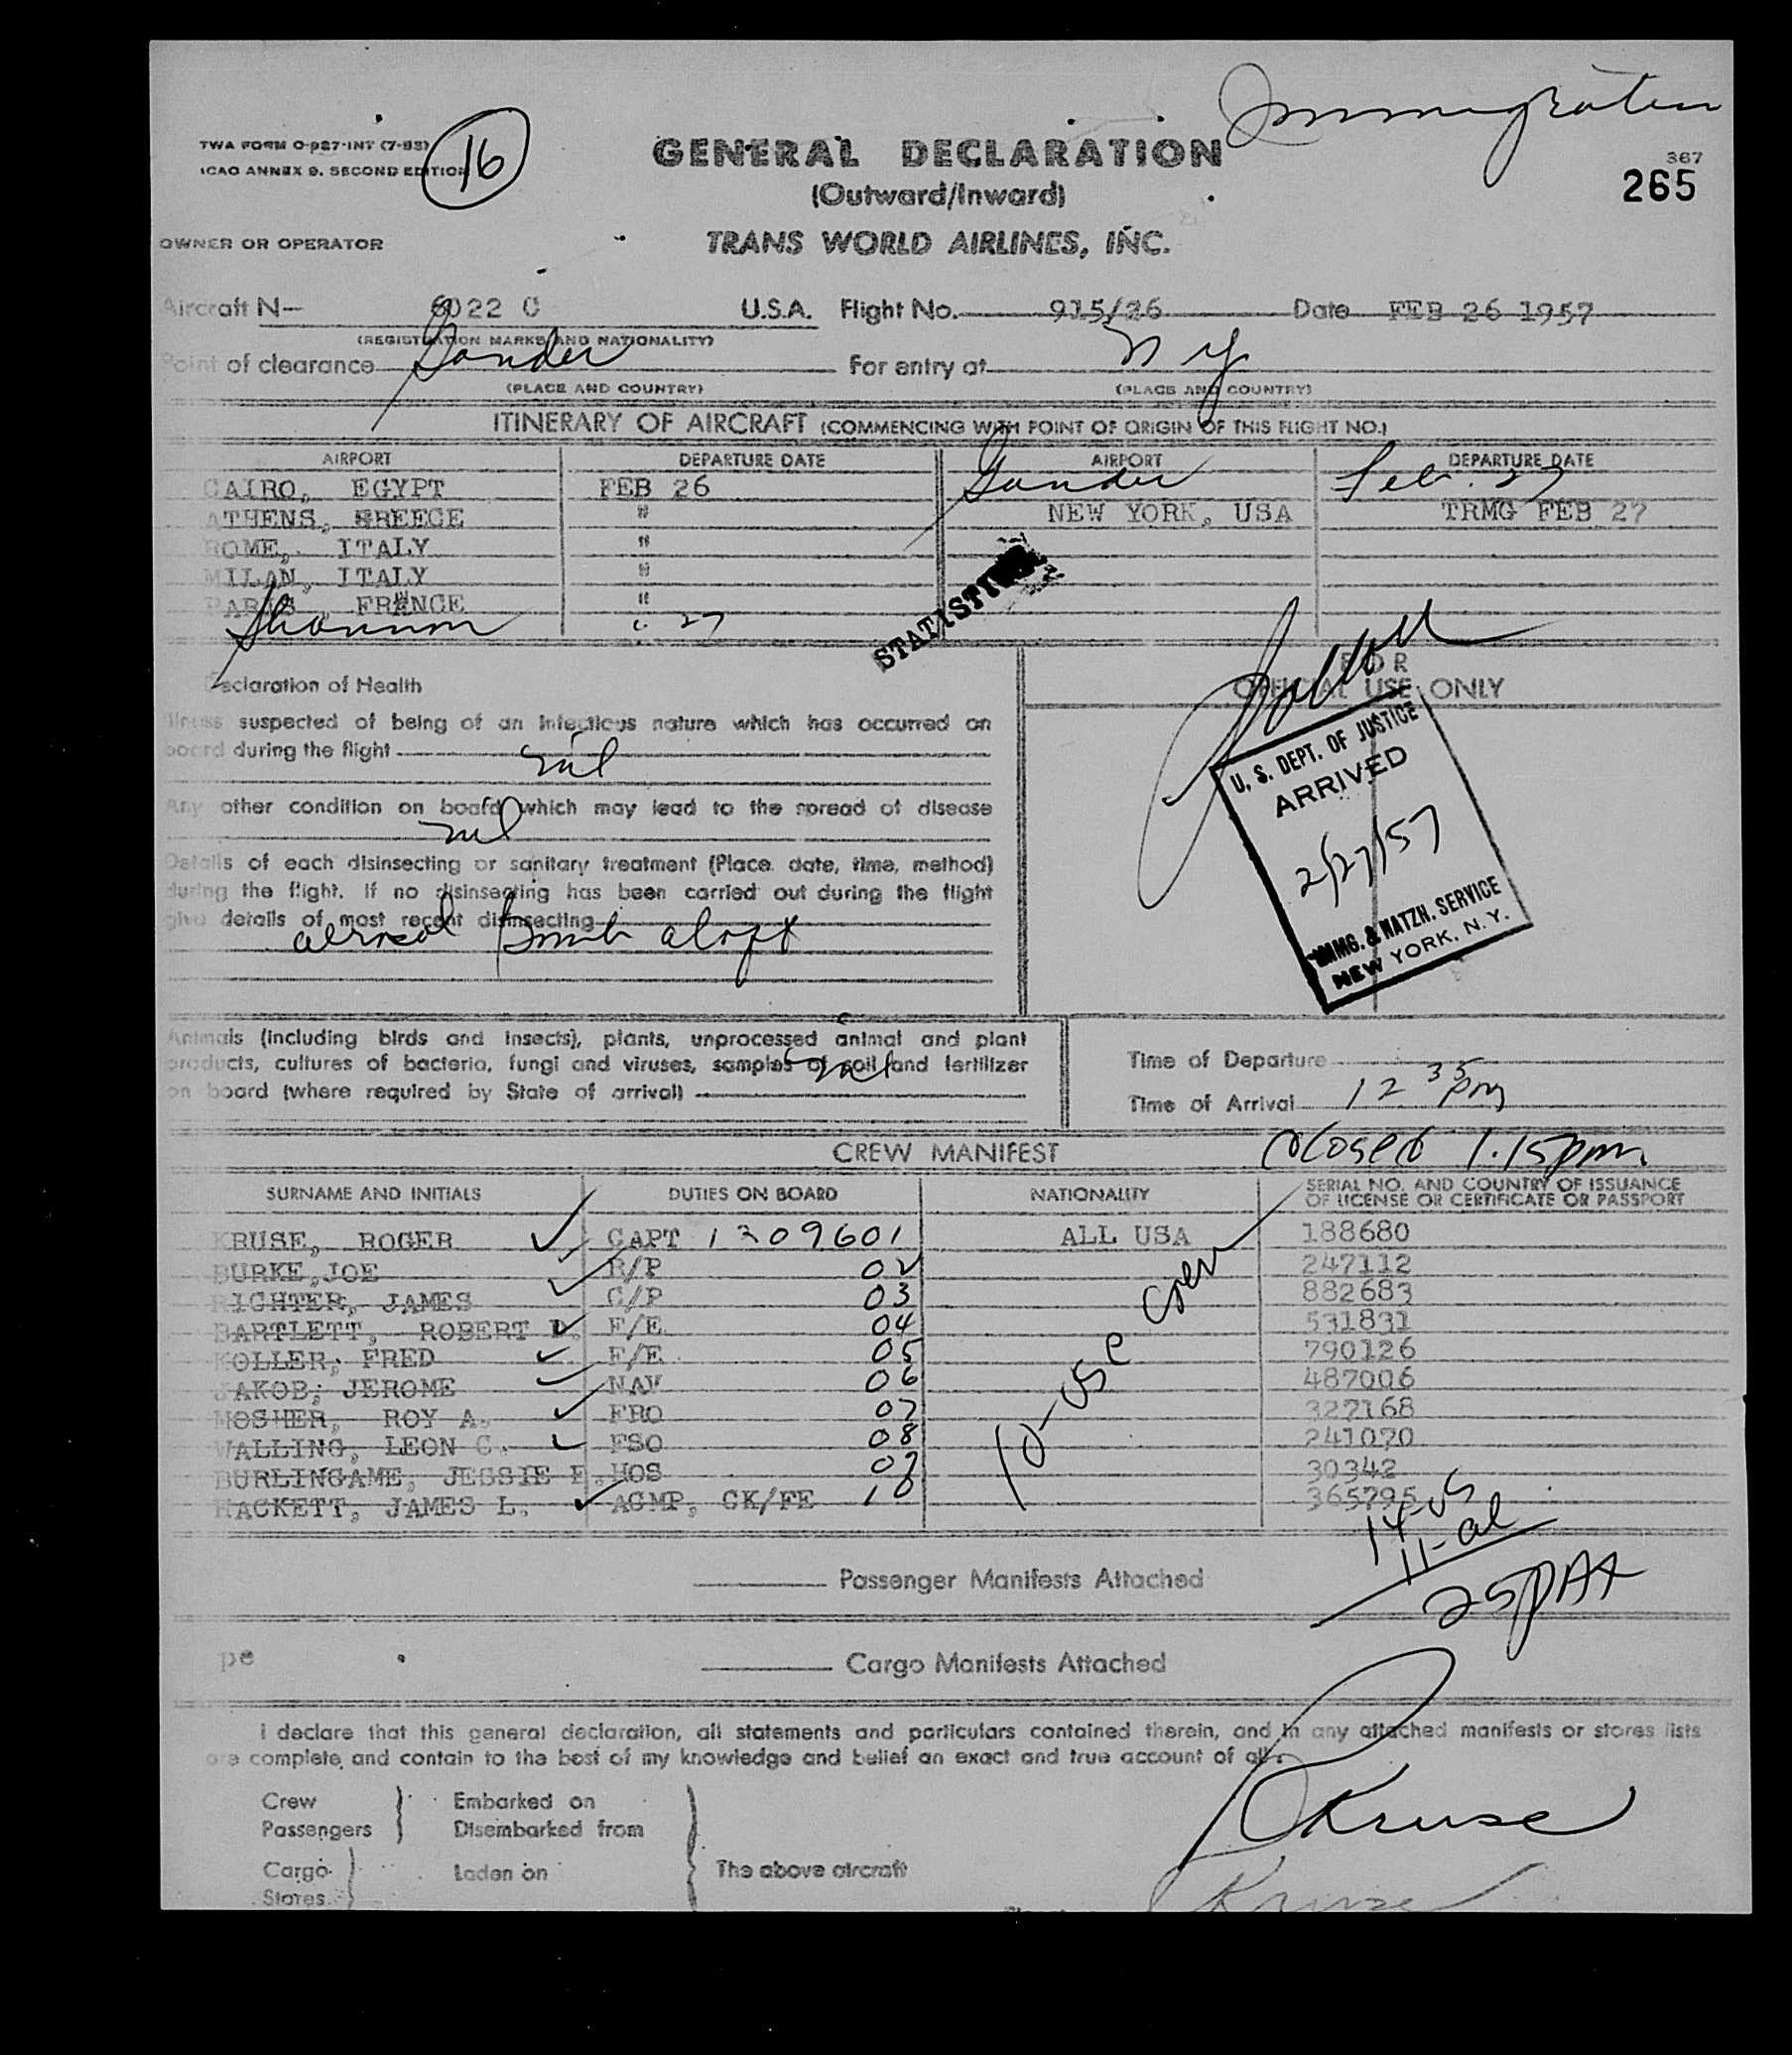 Immigration
TWA FORM O-927-INT (7-53)
ICAO ANNEX 9. SECOND EDITION
16
GENERAL DECLARATION
(Outward/Inward)
367
265
OWNER OR OPERATOR
TRANS WORLD AIRLINES, INC.
Aircraft N— 6022 C U.S.A. Flight No. 915/26 Date FEB 26 1957
(REGISTRATION MARKS AND NATIONALITY)
Point of clearance Gander For entry at N Y
(PLACE AND COUNTRY) (PLACE AND COUNTRY)
ITINERARY OF AIRCRAFT (COMMENCING WITH POINT OF ORIGIN OF THIS FLIGHT NO.)
AIRPORT DEPARTURE DATE AIRPORT DEPARTURE DATE
CAIRO, EGYPT FEB 26 Gander Feb. 27
ATHENS, GREECE " NEW YORK, USA TRMG FEB 27
ROME, ITALY "
MILAN, ITALY "
PARIS, FRANCE "
Shannon " 27
Declaration of Health
FOR
OFFICIAL USE ONLY
Illness suspected of being of an infectious nature which has occurred on
board during the flight nil
Any other condition on board which may lead to the spread of disease
nil
Details of each disinsecting or sanitary treatment (Place, date, time, method)
during the flight. If no disinsecting has been carried out during the flight
give details of most recent disinsecting
aerosol bomb aloft
U. S. DEPT. OF JUSTICE
ARRIVED
2/27/57
IMMG. & NATZN. SERVICE
NEW YORK, N. Y.
Animals (including birds and insects), plants, unprocessed animal and plant
products, cultures of bacteria, fungi and viruses, samples of soil and fertilizer
on board (where required by State of arrival) nil
Time of Departure
Time of Arrival 12 35 pm
closed 1.15 pm.
CREW MANIFEST
SURNAME AND INITIALS DUTIES ON BOARD NATIONALITY SERIAL NO. AND COUNTRY OF ISSUANCE
OF LICENSE OR CERTIFICATE OR PASSPORT
KRUSE, ROGER CAPT 1309601 ALL USA 188680
BURKE, JOE R/P 02 247112
RICHTER, JAMES C/P 03 882683
BARTLETT, ROBERT D. F/E 04 531831
KOLLER, FRED F/E 05 790126
JAKOB, JEROME NAV 06 487006
MOSHER, ROY A. FRO 07 327168
WALLING, LEON C. FSO 08 241070
BURLINGAME, JESSIE E. HOS 09 30342
HACKETT, JAMES L. ACMP, CK/FE 10 365795
10-USC Crew
14-US
11-al
25 PAX
Passenger Manifests Attached
Cargo Manifests Attached
I declare that this general declaration, all statements and particulars contained therein, and in any attached manifests or stores lists
are complete, and contain to the best of my knowledge and belief an exact and true account of all
Crew Embarked on
Passengers Disembarked from
Cargo Laden on The above aircraft
Stores
Kruse
Kruse